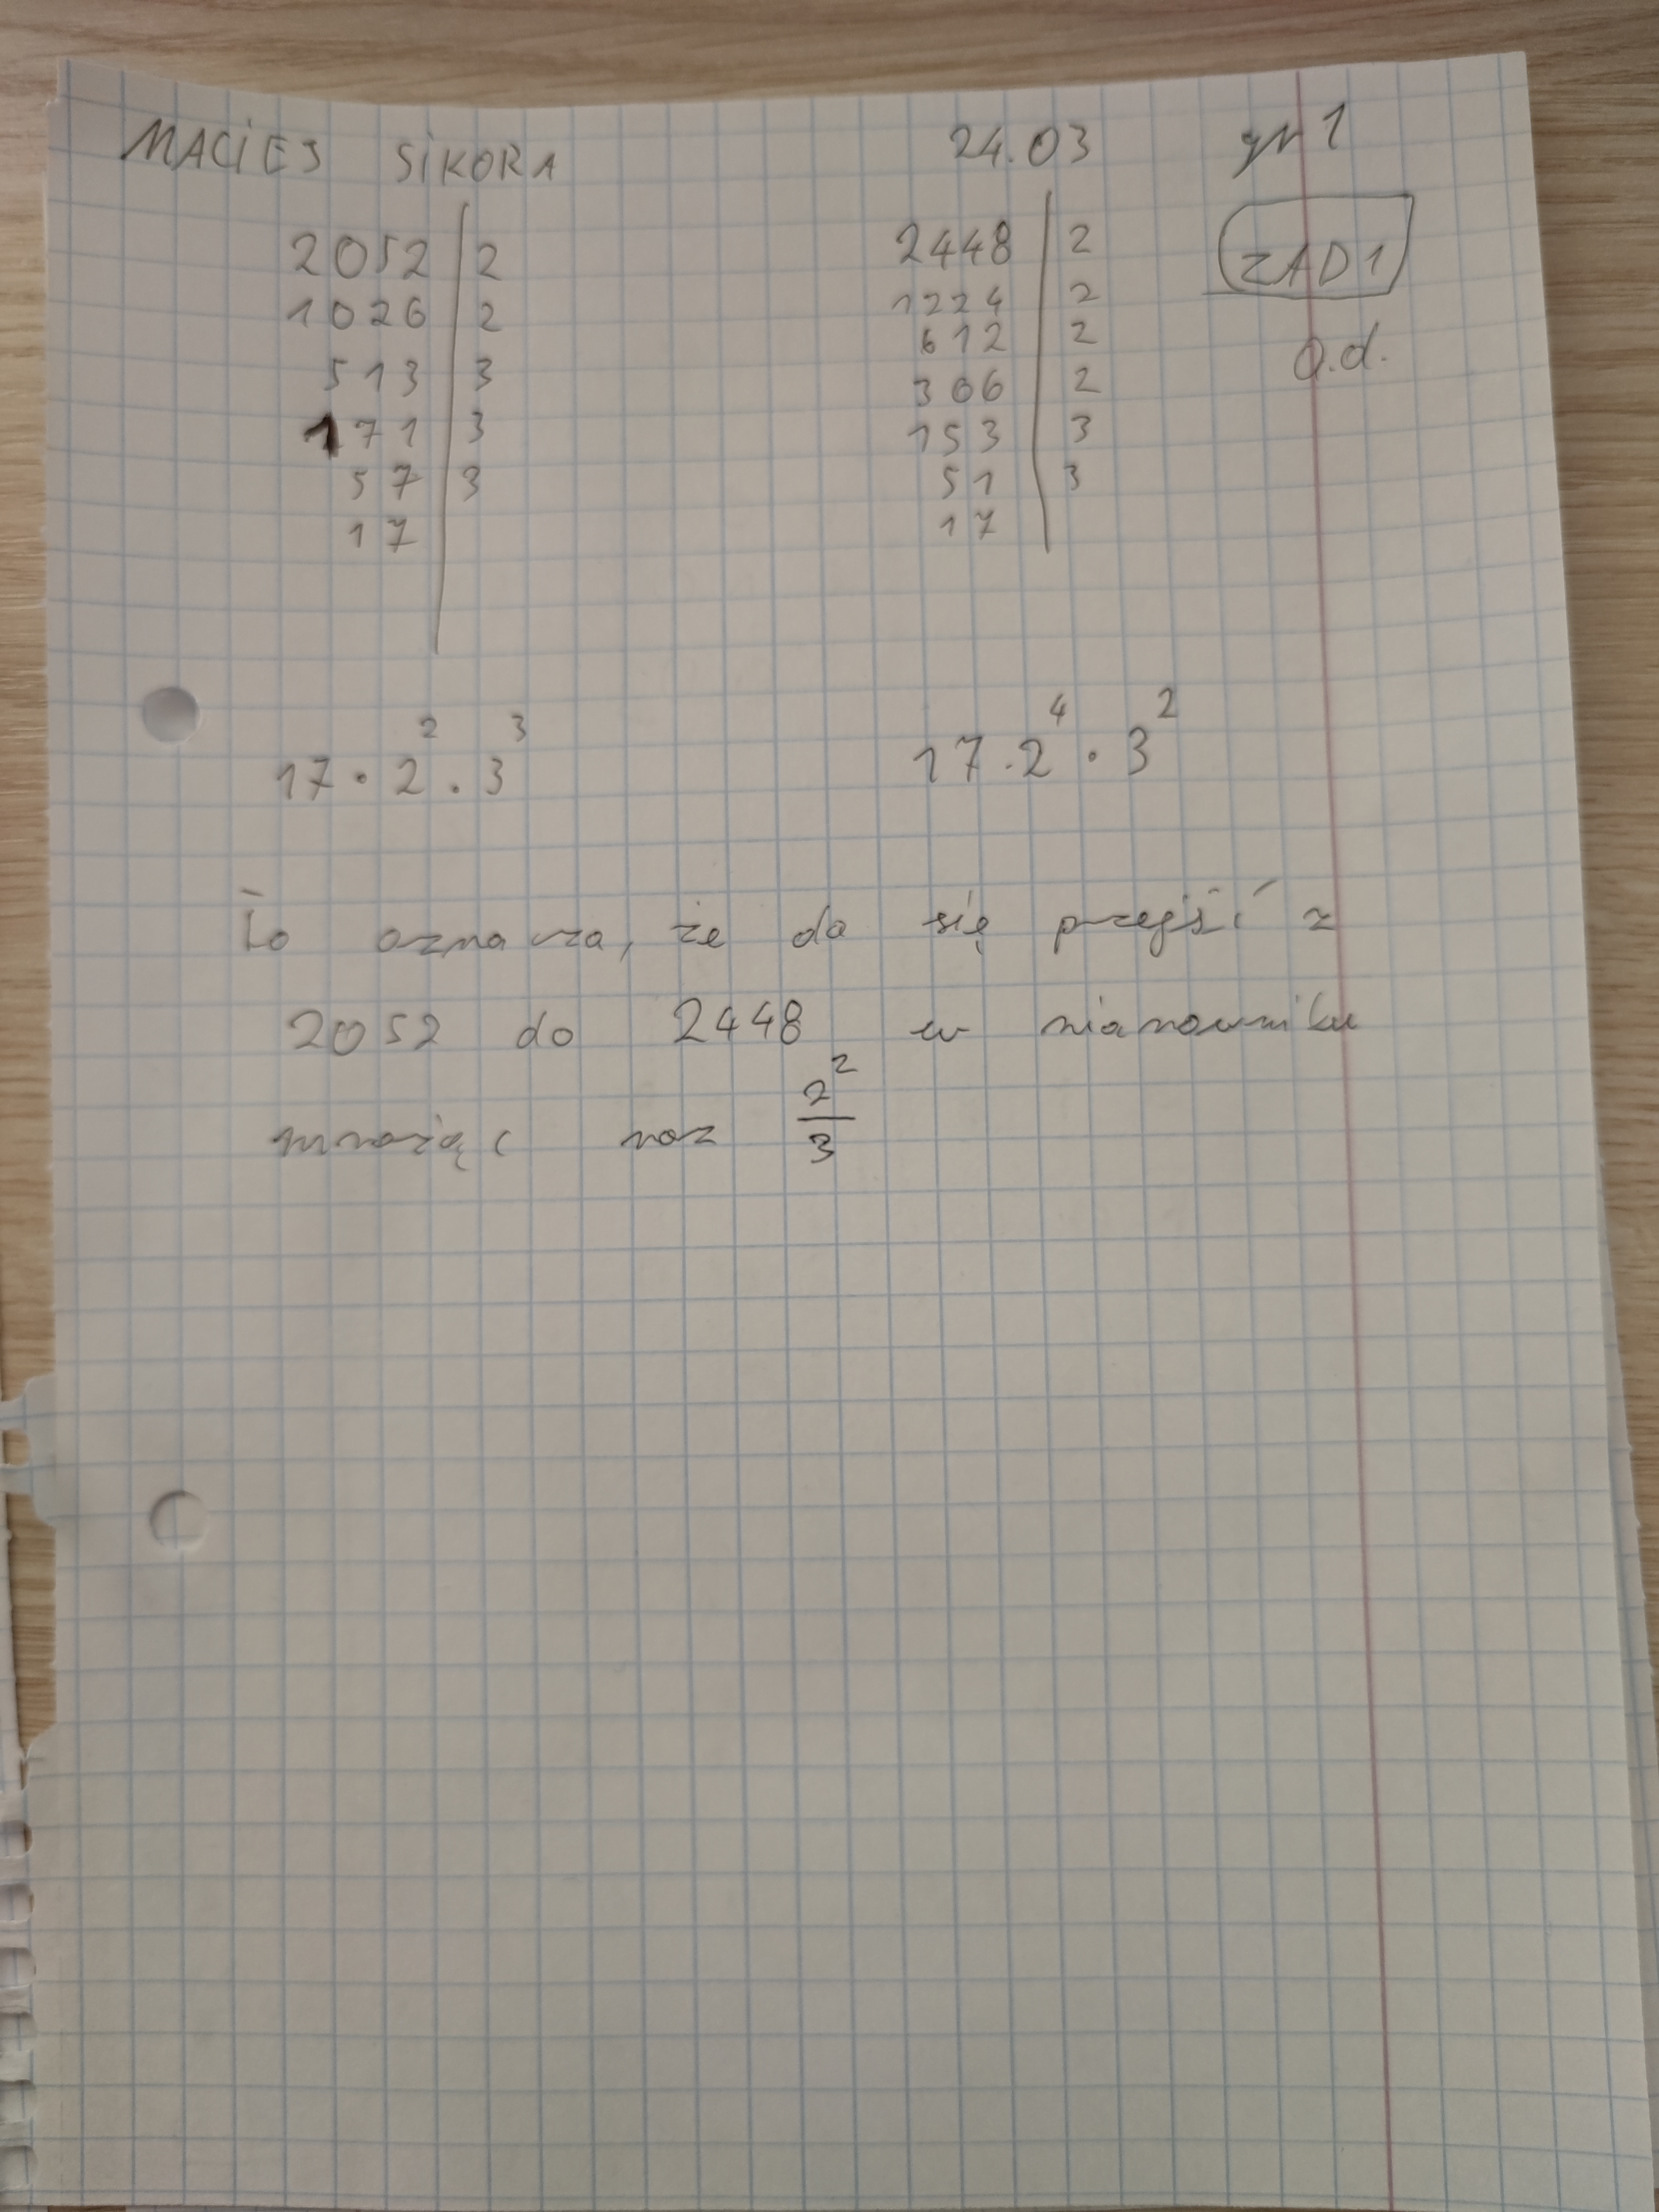 MACIEJ SIKORA 24.03 gr 1
ZAD 1
0.d.
2052 | 2
1026 | 2
513 | 3
171 | 3
57 | 3
17
2448 | 2
1224 | 2
612 | 2
306 | 2
153 | 3
51 | 3
17
17 · 2² · 3³
17 · 2⁴ · 3²
To oznacza, że da się przejść z
2052 do 2448 w mianowniku
mnożąc raz 2²/3